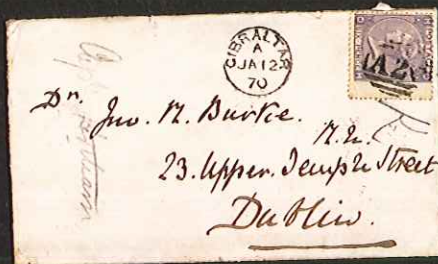 GIBRALTAR
A
JA 12
70
A26
Dr. Jno. M. Burke.
23. Upper Temple Street
Dublin.